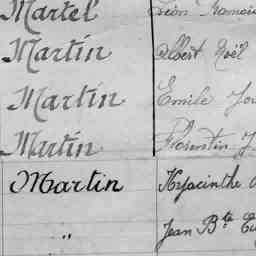 Martel Léon Romain
Martin Albert Noël
Martin Emile
Martin Florentin
Martin Hyacinthe
" Jean Bte